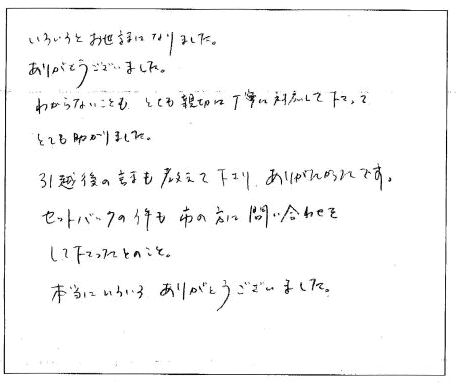 いろいろとお世話になりました。
ありがとうございました。
わからないことも とても親切に丁寧に対応して下さって
とても助かりました。
引越後の事も教えて下さり、ありがたかったです。
セットバックの件も市の方に問い合わせを
して下さったとのこと。
本当にいろいろ ありがとうございました。